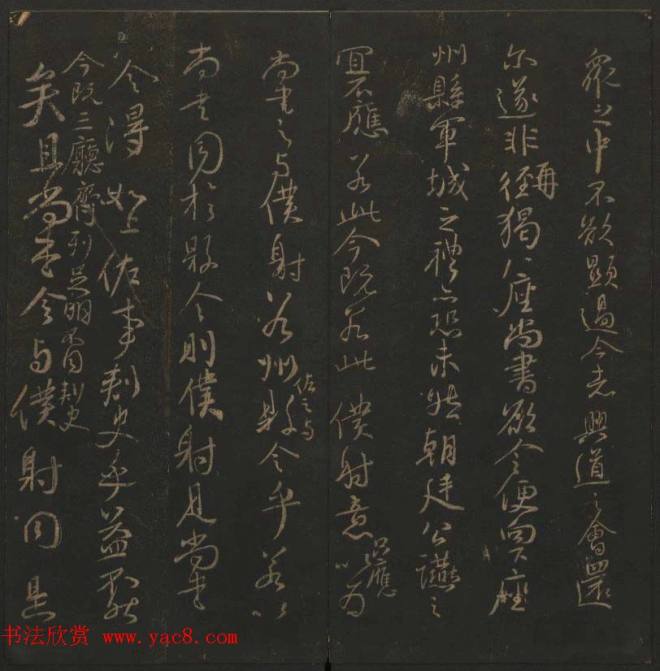 眾之中不欲顯過今者興道之會還
尓遂非再徑猲八座尚書欲令便向下座
州縣軍城之禮亦恐未然朝廷公讌之
冝不應若此今既若此僕射意只應以為
尚書之与僕射若州佐之与縣令乎若以
尚書同於縣令則僕射見尚書
令得如上佐事刺史乎益不然
今既三廳齊列足明不同刺史
矣且尚書令与僕射同是
书法欣赏 www.yac8.com